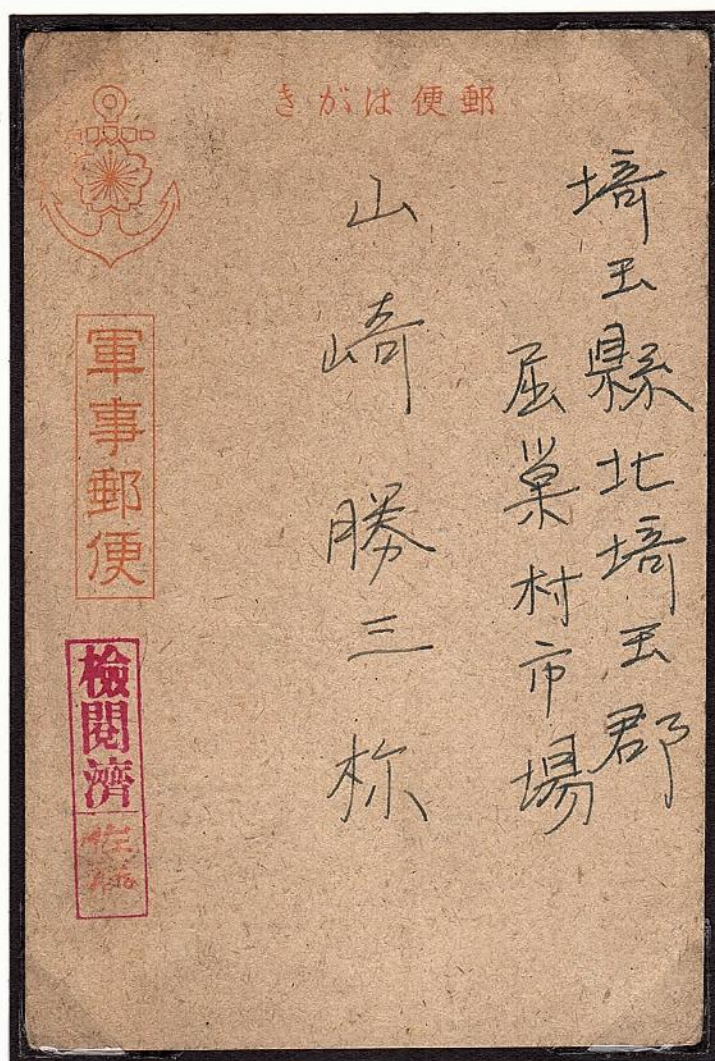 郵便はがき
埼玉縣北埼玉郡
屈巣村市場
山崎勝三様
軍事郵便
檢閲濟